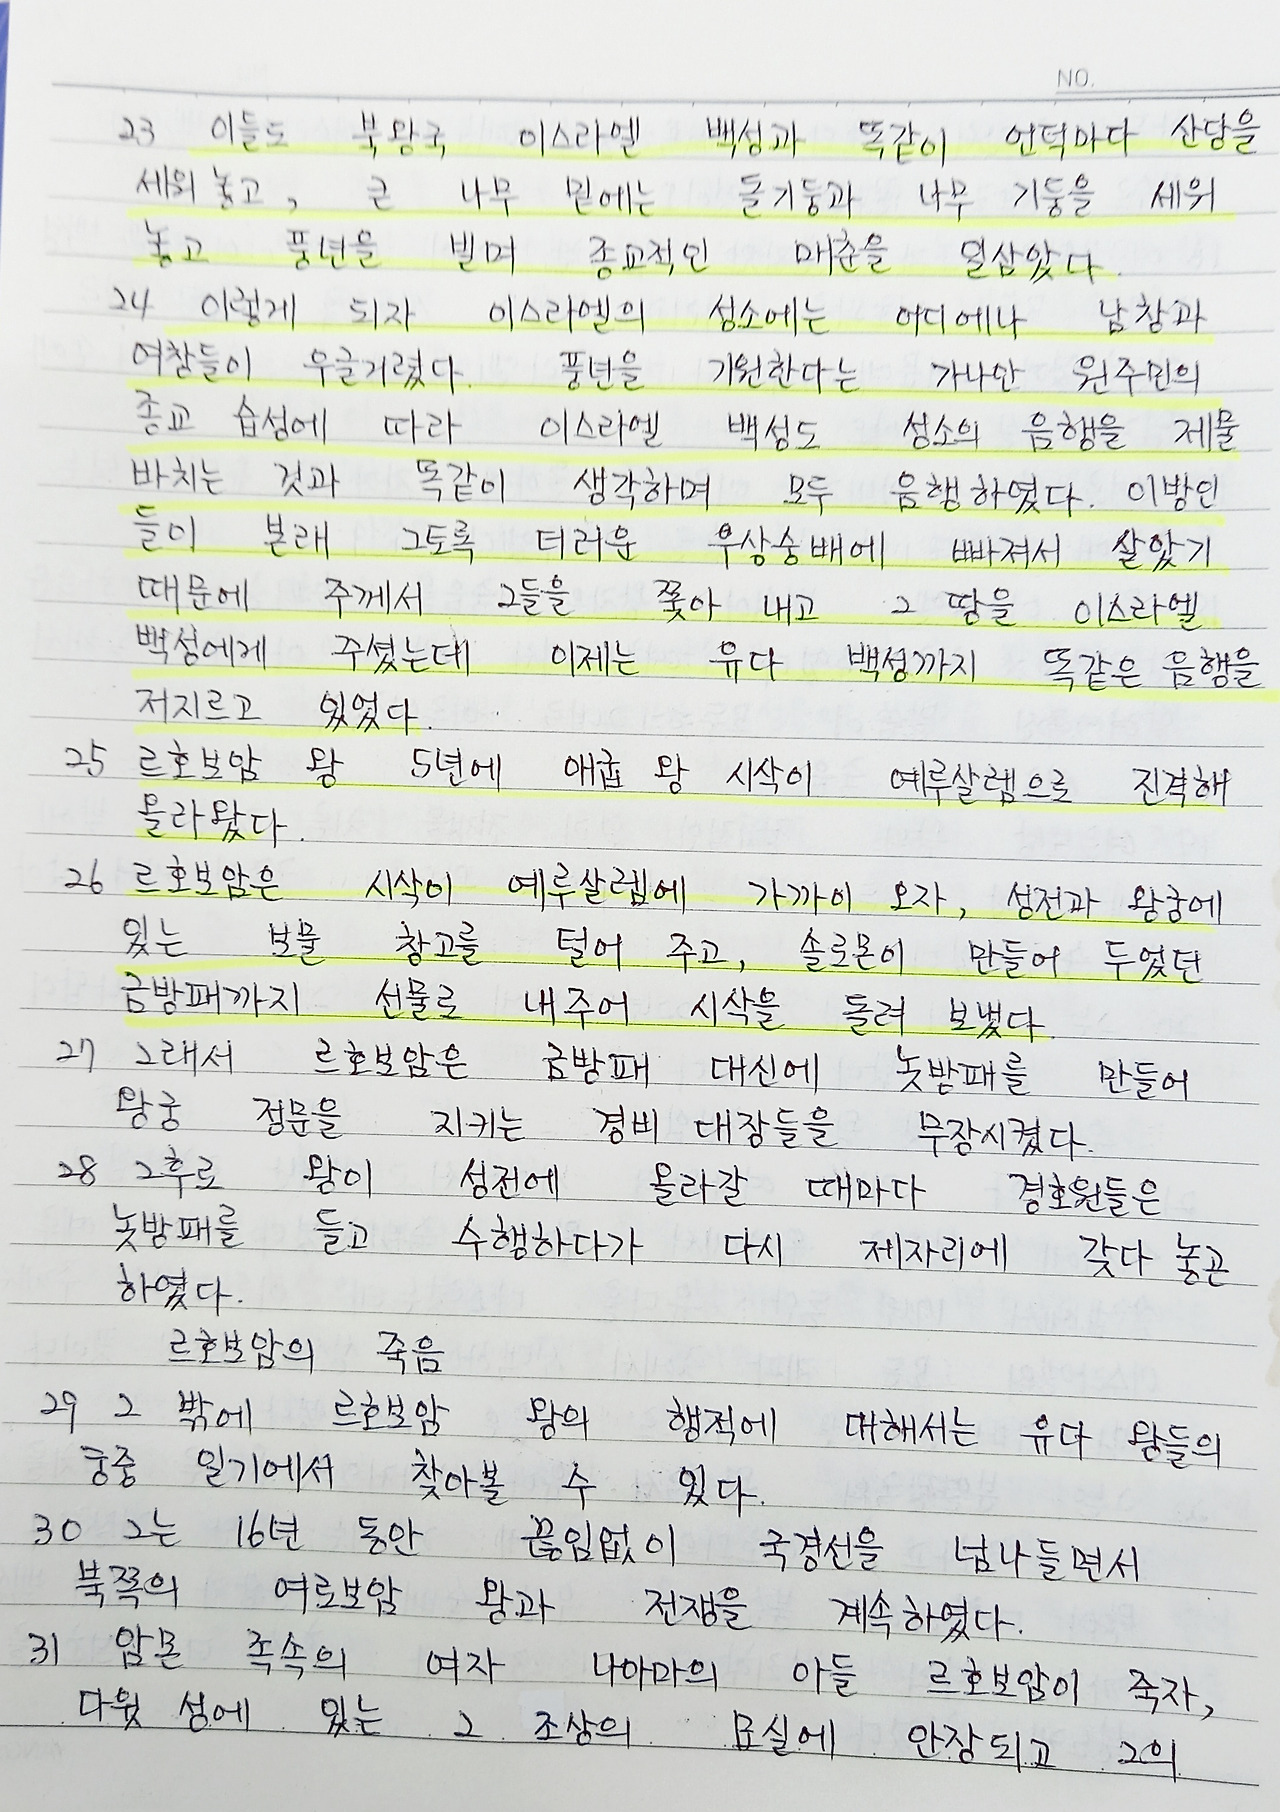 NO.
23 이들도 북왕국 이스라엘 백성과 똑같이 언덕마다 산당을
세워 놓고, 큰 나무 밑에는 돌기둥과 나무 기둥을 세워
놓고 풍년을 빌며 종교적인 매춘을 일삼았다.
24 이렇게 되자 이스라엘의 성소에는 어디에나 남창과
여창들이 우글거렸다. 풍년을 기원한다는 가나안 원주민의
종교 습성에 따라 이스라엘 백성도 성소의 음행을 제물
바치는 것과 똑같이 생각하며 모두 음행하였다. 이방인
들이 본래 그토록 더러운 우상숭배에 빠져서 살았기
때문에 주께서 그들을 쫓아 내고 그 땅을 이스라엘
백성에게 주셨는데 이제는 유다 백성까지 똑같은 음행을
저지르고 있었다.
25 르호보암 왕 5년에 애굽 왕 시삭이 예루살렘으로 진격해
올라왔다.
26 르호보암은 시삭이 예루살렘에 가까이 오자, 성전과 왕궁에
있는 보물 창고를 털어 주고, 솔로몬이 만들어 두었던
금방패까지 선물로 내주어 시삭을 돌려 보냈다.
27 그래서 르호보암은 금방패 대신에 놋밭패를 만들어
왕궁 정문을 지키는 경비 대장들을 무장시켰다.
28 그후로 왕이 성전에 올라갈 때마다 경호원들은
놋방패를 들고 수행하다가 다시 제자리에 갖다 놓곤
하였다.
르호보암의 죽음
29 그 밖에 르호보암 왕의 행적에 대해서는 유다 왕들의
궁중 일기에서 찾아볼 수 있다.
30 그는 16년 동안 끊임없이 국경선을 넘나들면서
북쪽의 여로보암 왕과 전쟁을 계속하였다.
31 암몬 족속의 여자 나아마의 아들 르호보암이 죽자,
다윗 성에 있는 그 조상의 묘실에 안장되고 그의